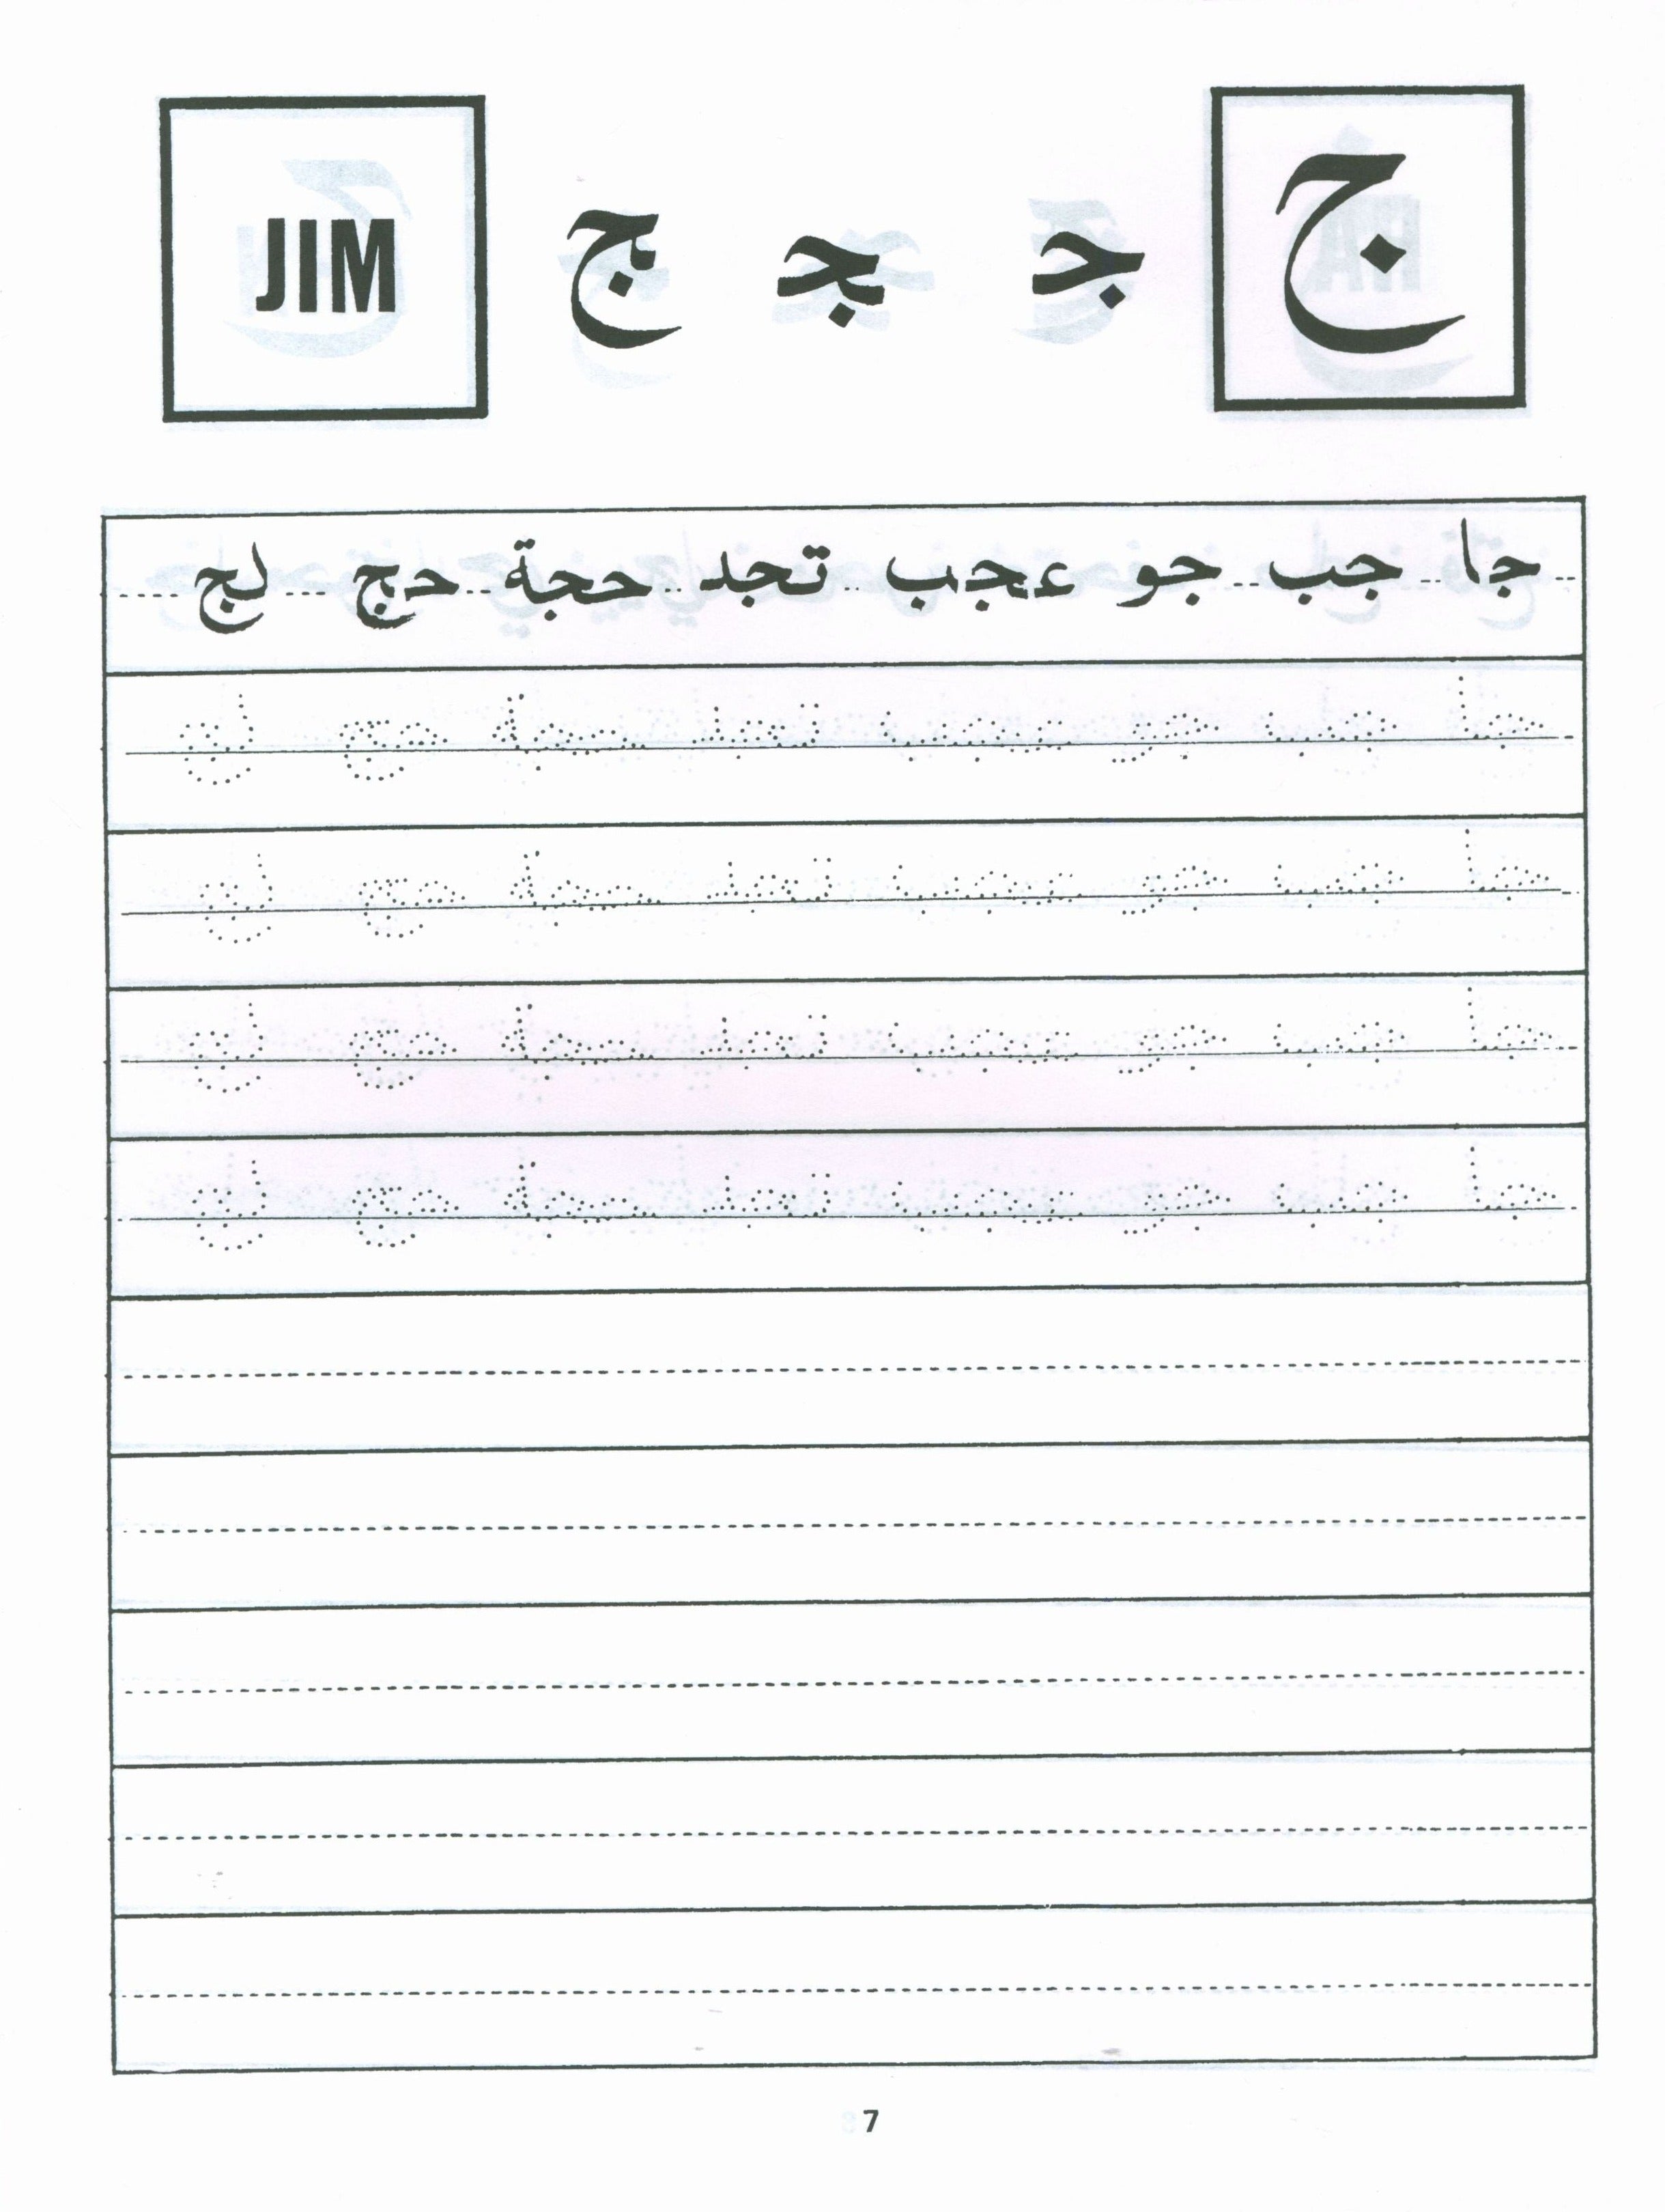 ج جـ ـجـ ـج JIM
جا جب جو عجب تجد حجة حج لج
جا جب جو عجب تجد حجة حج لج
جا جب جو عجب تجد حجة حج لج
جا جب جو عجب تجد حجة حج لج
جا جب جو عجب تجد حجة حج لج
7